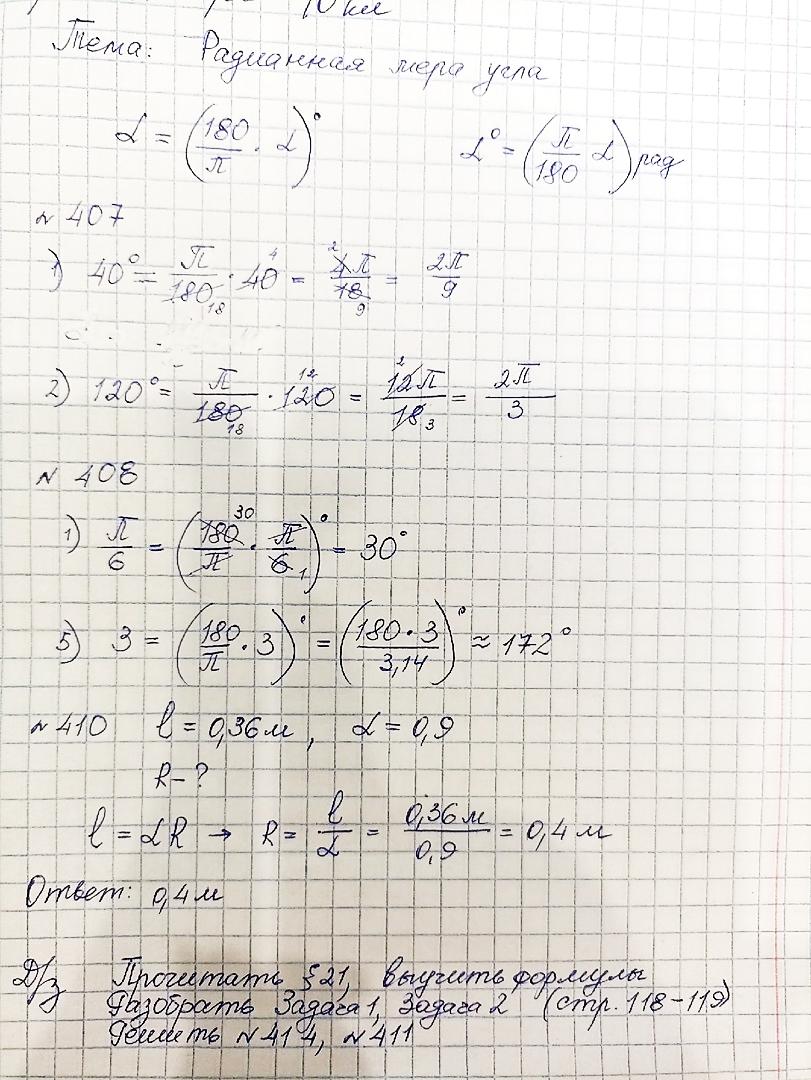 10 км
Тема: Радианная мера угла
α = (180/π · α)° α° = (π/180 α) рад
№ 407
1) 40° = π/180 · 40 = 4π/18 = 2π/9
2) 120° = π/180 · 120 = 12π/18 = 2π/3
№ 408
1) π/6 = (180/π · π/6)° = 30°
5) 3 = (180/π · 3)° = (180 · 3/3,14)° ≈ 172°
№ 410 l = 0,36 м, α = 0,9
R – ?
l = αR → R = l/α = 0,36 м/0,9 = 0,4 м
Ответ: 0,4 м
Д/з Прочитать §21, выучить формулы
Разобрать Задача 1, Задача 2 (стр. 118-119)
Решить №414, №411